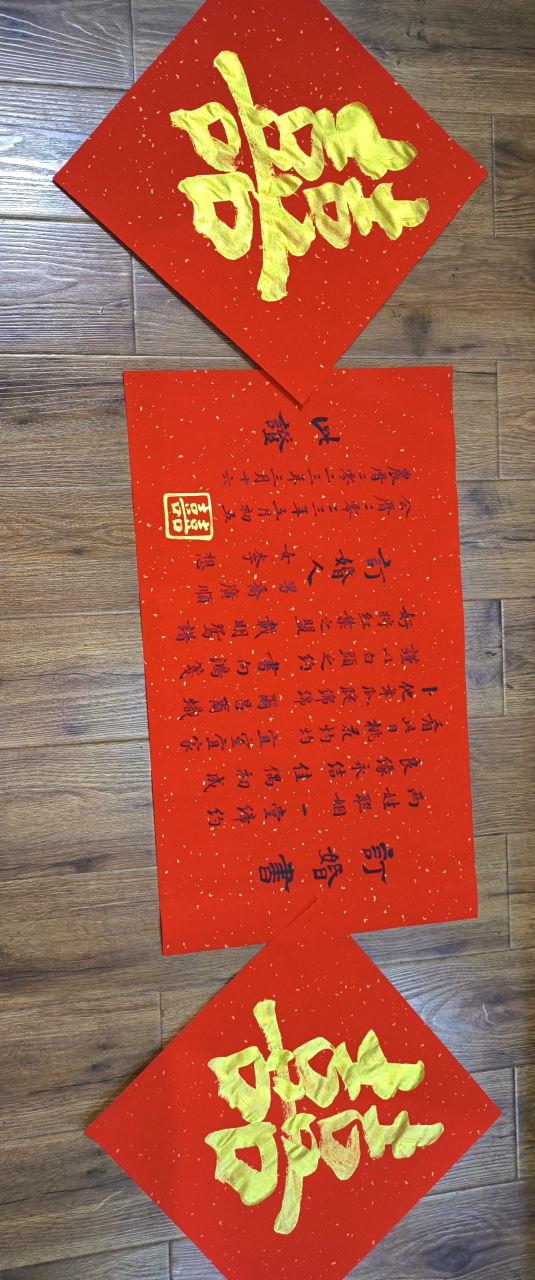 囍
訂婚書
兩姓聯姻 一堂締約
良緣永結 佳偶初成
看此日桃花灼灼 宜室宜家
卜他年瓜瓞綿綿 爾昌爾熾
謹以白頭之約 書向鴻箋
好將紅葉之盟 載明鴛譜
訂婚人
男 喬廣順
女 李想
公曆二零二三年五月初五
農曆二零二三年三月十六
此證
囍
囍